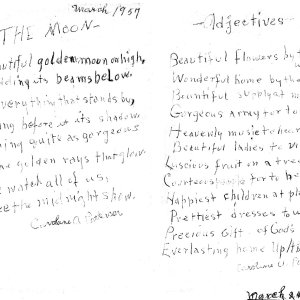 March 1957
THE MOON-
utiful golden moon on high,
ding its beams below.
verything that stands by,
ng before us its shadow
ning quilts as gorgeous
e golden rays that glows
watch all of us,
ee the midnight show.
Caroline A.
-Adjectives-
Beautiful flowers by t
Wonderful home by tha
Bountiful supply at m
Gorgeous array for to
Heavenly music to hear
Beautiful ladies to vi
Luscious fruit on a tree
Counterparts for to be
Happiest children at pla
Prettiest dresses to w
Precious Gift of Gods
Everlasting home Up
Caroline A.
March 2